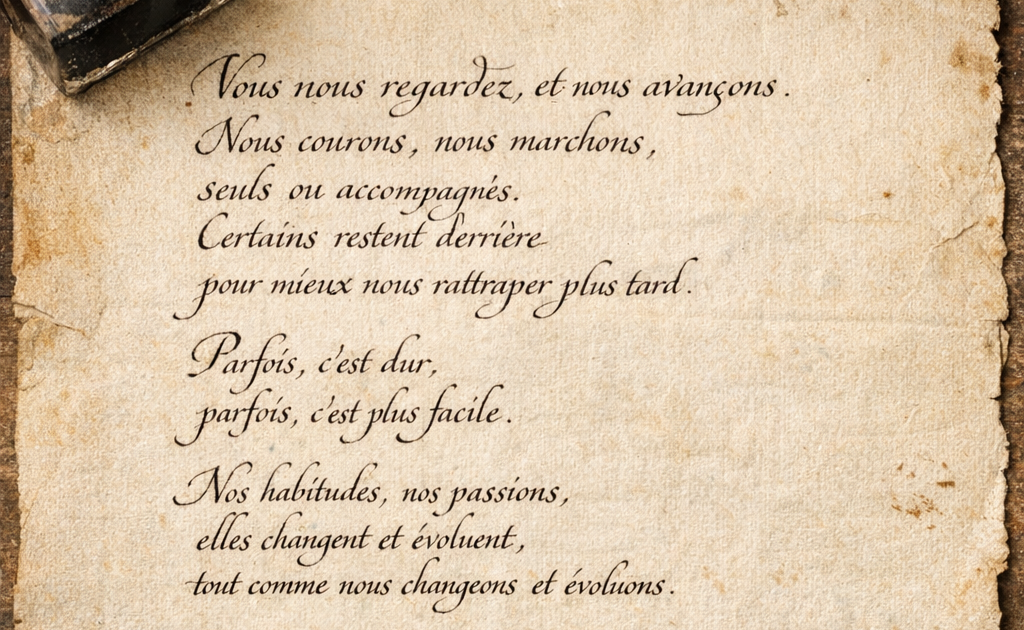 Vous nous regardez, et nous avançons.
Nous courons, nous marchons,
seuls ou accompagnés.
Certains restent derrière
pour mieux nous rattraper plus tard.
Parfois, c'est dur,
parfois, c'est plus facile.
Nos habitudes, nos passions,
elles changent et évoluent,
tout comme nous changeons et évoluons.